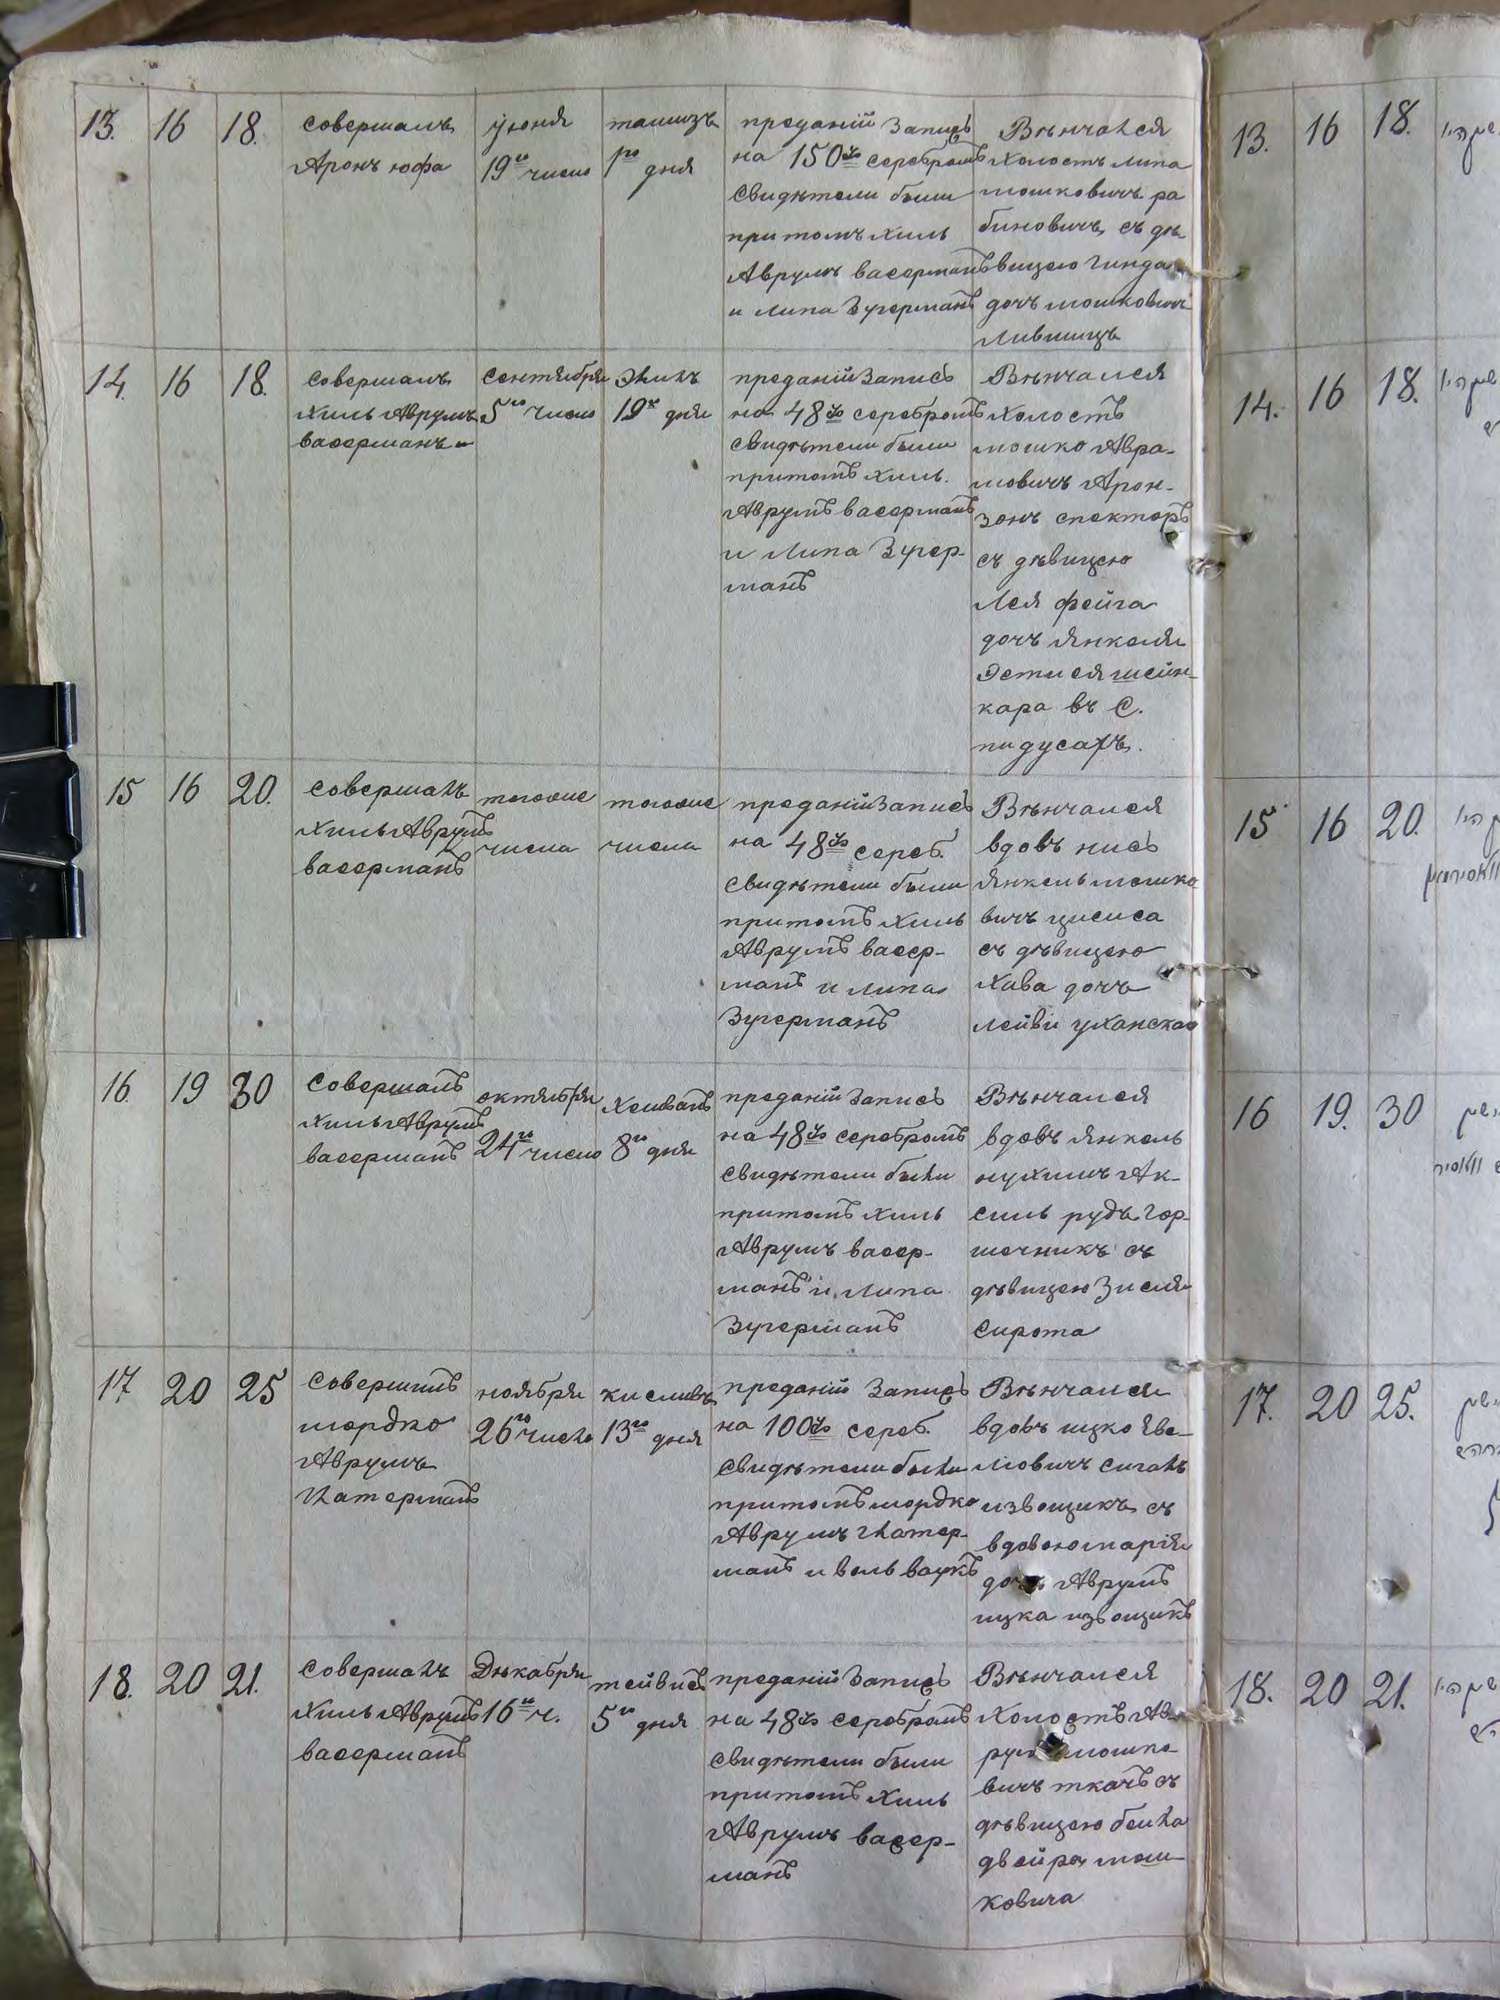 13. 16 18.
совершалъ
Аронъ юфа
іюня
19го число
тамизъ
1го дня
преданій запись
на 150 серебромъ
свидѣтели были
притомъ хиль
Аврумъ васерманъ
и липа Зугерманъ
Вѣнчался
холостъ липа
мошковичъ ра
биновичъ, съ дѣ
вицею гинда
дочъ мошковичъ
Лившицъ
14. 16 18.
совершалъ
хиль Аврумъ
васерманъ
сентября
5го число
Элилъ
19го дня
преданій запись
на 48 серебромъ
свидѣтели были
притомъ хиль
Аврумъ васерманъ
и Липа Зугер-
манъ
Вѣнчался
холостъ
мошко Авра-
мовичъ Арон-
зонъ спекторъ
съ дѣвицею
Лея фейга
дочъ янкеля
шейн-
кара въ С.
пидусахъ.
15 16 20.
совершалъ
хиль Аврумъ
васерманъ
тогоже
числа
тогоже
числа
преданій запись
на 48 сереб.
свидѣтели были
притомъ хиль
Аврумъ васер-
манъ и липа
Зугерманъ
Вѣнчался
вдовъ нисъ
янкель мошко
вичъ цисиса
съ дѣвицею
хава дочъ
лейви уманская
16. 19 30
совершалъ
хиль Аврумъ
васерманъ
октября
24го число
хешванъ
8го дня
преданій запись
на 48 серебромъ
свидѣтели были
притомъ хиль
Аврумъ васер-
манъ и липа
Зугерманъ
Вѣнчался
вдовъ янкель
нухимъ Ак-
силь рудъ гор-
шечникъ съ
дѣвицею Зисля
сирота
17 20 25
совершилъ
мордко
Аврумъ
ноября
26го число
кисливъ
13го дня
преданій запись
на 100 сереб.
свидѣтели были
притомъ мордко
Аврумъ
манъ и воль
Вѣнчался
вдовъ ицко
мовичъ сигалъ
извощикъ съ
вдовою марія
дочъ Аврумъ
ицка извощикъ
18. 20 21.
совершалъ
хиль Аврумъ
васерманъ
Дѣкабря
16го ч.
тейвисъ
5го дня
преданій запись
на 48 серебромъ
свидѣтели были
притомъ хиль
Аврумъ васер-
манъ
Вѣнчался
холостъ Ав-
румъ мошко-
вичъ ткачъ съ
дѣвицею бейла
двейра мош-
ковича
13. 16 18.
14. 16 18.
15 16 20.
16 19. 30
17. 20 25.
18. 20 21.